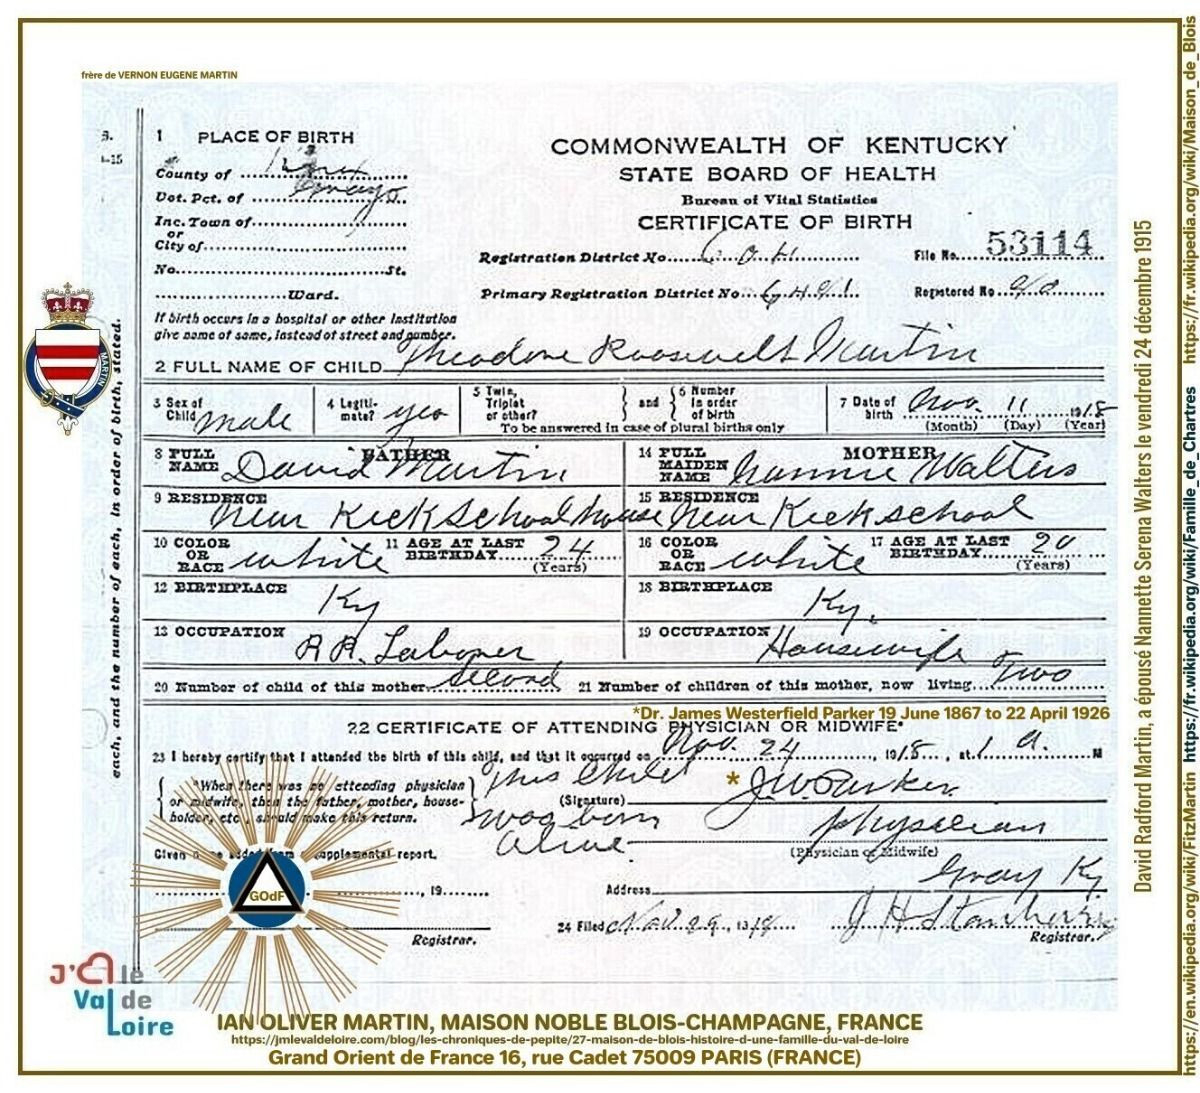 frère de VERNON EUGENE MARTIN
3.
1-15
1 PLACE OF BIRTH
County of Knox
Vot. Pct. of
Inc. Town of
or
City of
No. St.
Ward.
If birth occurs in a hospital or other institution
give name of same, instead of street and number.
COMMONWEALTH OF KENTUCKY
STATE BOARD OF HEALTH
Bureau of Vital Statistics
CERTIFICATE OF BIRTH
Registration District No.
File No. 53114
Primary Registration District No.
Registered No.
2 FULL NAME OF CHILD Theodore Roosevelt Martin
3 Sex of Child male
4 Legiti-mate? yes
5 Twin, Triplet or other?
and
6 Number in order of birth
To be answered in case of plural births only
7 Date of birth Nov. 11 1918
(Month) (Day) (Year)
FATHER
8 FULL NAME David Martin
MOTHER
14 FULL MAIDEN NAME Nannie Walters
9 RESIDENCE near Keck School house
15 RESIDENCE near Keck school
10 COLOR OR RACE white
11 AGE AT LAST BIRTHDAY 24
(Years)
16 COLOR OR RACE white
17 AGE AT LAST BIRTHDAY 20
(Years)
12 BIRTHPLACE Ky
18 BIRTHPLACE Ky.
13 OCCUPATION R.R. Laborer
19 OCCUPATION Housewife
20 Number of child of this mother Second
21 Number of children of this mother, now living Two
*Dr. James Westerfield Parker 19 June 1867 to 22 April 1926
22 CERTIFICATE OF ATTENDING PHYSICIAN OR MIDWIFE*
23 I hereby certify that I attended the birth of this child, and that it occurred on Nov. 24, 1918, at 1 a. M
{When there was no attending physician
or midwife, then the father, mother, house-
holder, etc., should make this return.}
This Child
was born
alive
* (Signature) J.W. Parker
physician
(Physician or Midwife)
Given name added from supplemental report.
19
Registrar.
Address Gray Ky
24 Filed Nov. 29, 1918 J H Stanberry
Registrar.
each, and the number of each, in order of birth, stated.
MARTIN
GOdF
J'A le
Val de
Loire
IAN OLIVER MARTIN, MAISON NOBLE BLOIS-CHAMPAGNE, FRANCE
https://jmlevaldeloire.com/blog/les-chroniques-de-pepite/27-maison-de-blois-histoire-d-une-famille-du-val-de-loire
Grand Orient de France 16, rue Cadet 75009 PARIS (FRANCE)
David Radford Martin, a épousé Nannette Serena Walters le vendredi 24 décembre 1915
https://en.wikipedia.org/wiki/FitzMartin https://fr.wikipedia.org/wiki/Famille_de_Chartres https://fr.wikipedia.org/wiki/Maison_de_Blois